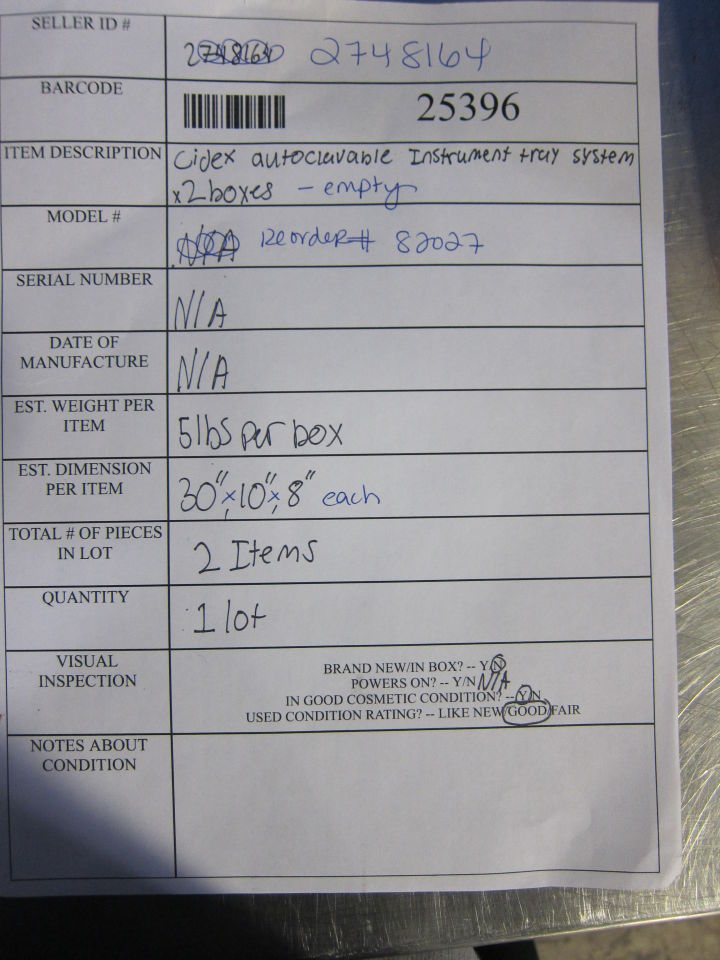 SELLER ID #
2748164
BARCODE
25396
ITEM DESCRIPTION
Cidex autoclavable Instrument tray system
x2 boxes - empty
MODEL #
N/A Reorder# 82027
SERIAL NUMBER
N/A
DATE OF
MANUFACTURE
N/A
EST. WEIGHT PER
ITEM
5lbs per box
EST. DIMENSION
PER ITEM
30" x 10" x 8" each
TOTAL # OF PIECES
IN LOT
2 Items
QUANTITY
1 lot
VISUAL
INSPECTION
BRAND NEW/IN BOX? -- Y/N
POWERS ON? -- Y/N N/A
IN GOOD COSMETIC CONDITION? -- Y/N
USED CONDITION RATING? -- LIKE NEW/GOOD/FAIR
NOTES ABOUT
CONDITION